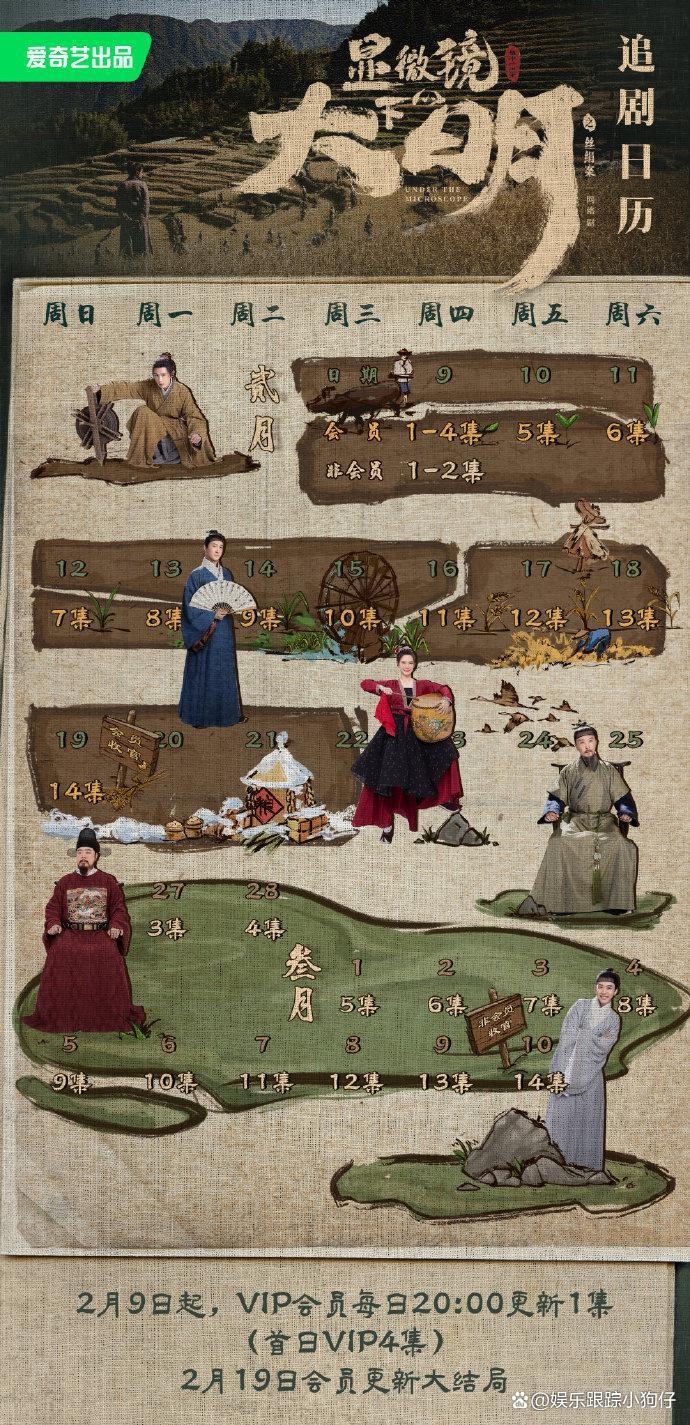 爱奇艺出品
显微镜
下的
大明
之丝绢案
UNDER THE
MICROSCOPE
追剧日历
周日 周一 周二 周三 周四 周五 周六
贰月
日期 9 10 11
会员 1-4集 5集 6集
非会员 1-2集
12 13 14 15 16 17 18
7集 8集 9集 10集 11集 12集 13集
19 20 21 22 3 24 25
会员
收官
14集
27 28
3集 4集
叁月
1 2 3 4
5集 6集 7集 8集
非会员
收官
5 6 7 8 9 10
9集 10集 11集 12集 13集 14集
2月9日起，VIP会员每日20:00更新1集
（首日VIP4集）
2月19日会员更新大结局
@娱乐跟踪小狗仔